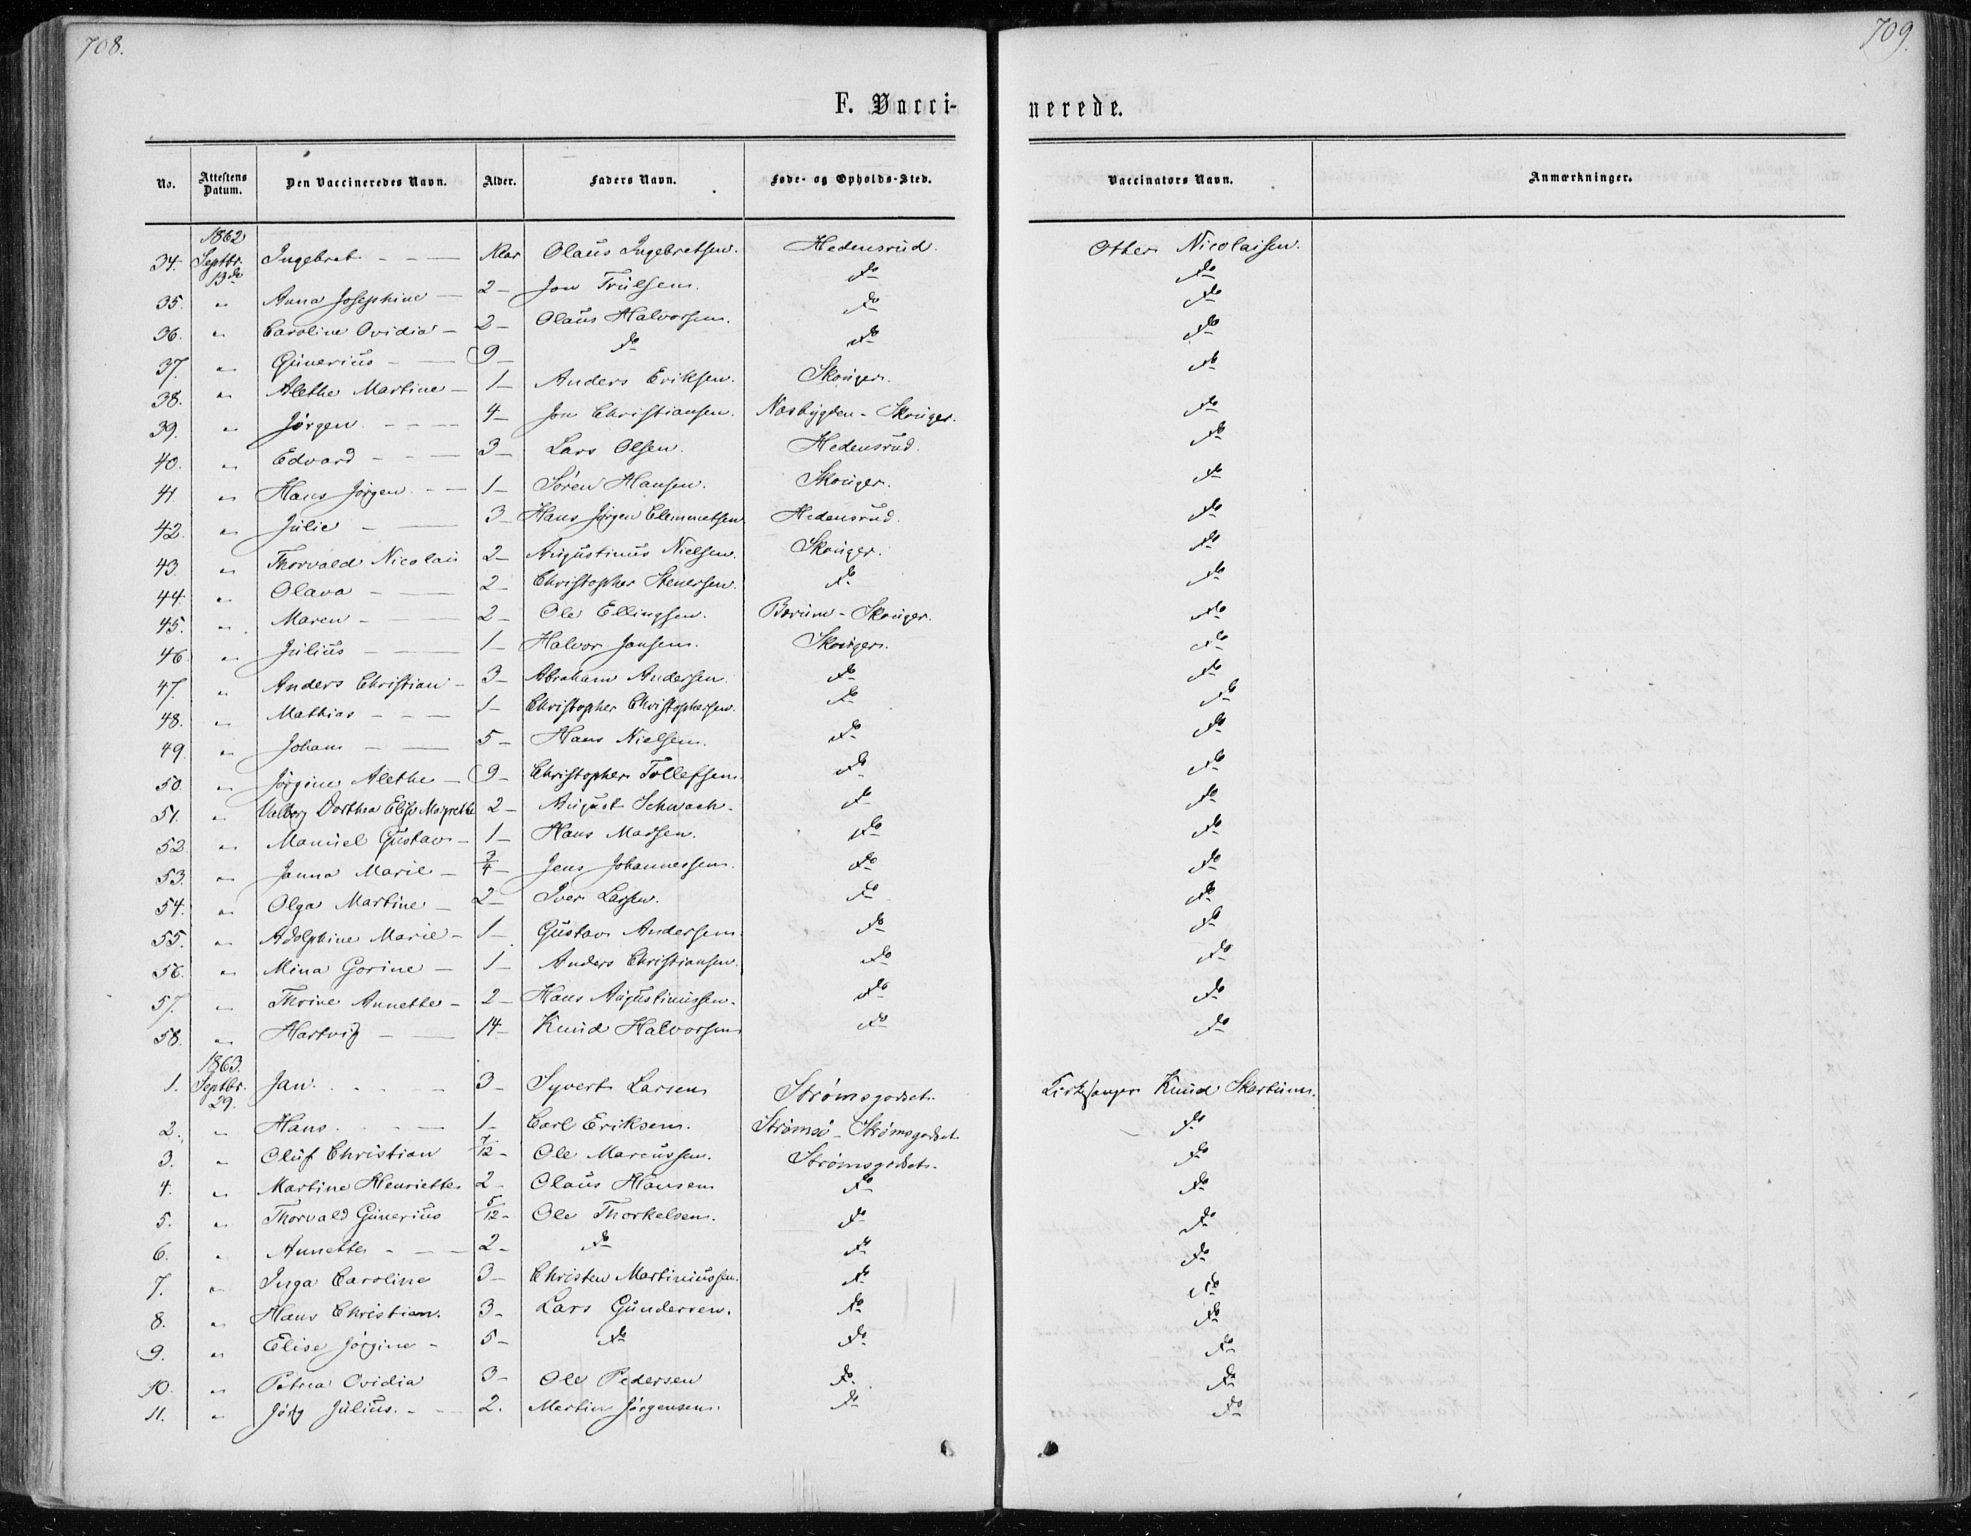 708.
709.
F. Vacci-
nerede.
No. Attestens Datum. Den Vaccineredes Navn. Alder. Faders Navn. Føde- og Opholds-Sted. Vaccinators Navn. Anmærkninger.
1862
34. Septbr. 13de Ingebret - - — 1 Aar Olaus Ingebretsen. Hedensrud. Other Nicolaisen.
35. " Anna Josephine — 2 - Jon Trulsen. do do
36. " Caroline Ovidia - 2 - Olaus Halvorsen. do do
37. " Gunerius - — 9 - do do do
38. " Alethe Martine - 1 - Anders Eriksen. Skouger. do
39. " Jørgen - - - — 4 - Jon Christiansen. Næsbygden - Skouger. do
40. " Edvard - - — 3 - Lars Olsen. Hedensrud. do
41 " Hans Jørgen. - — 1 - Søren Hansen. Skouger. do
42. " Julie - — 3 - Hans Jørgen Clemmetsen Hedensrud. do
43. " Thorvald Nicolai 2 - Augustinus Nielsen. Skouger. do
44. " Olava - — 2 - Christopher Stenersen. do do
45. " Maren - - — 2 - Ole Ellingsen. Børum - Skouger. do
46 " Julius - — 1 - Halvor Jansen. Skouger. do
47. " Anders Christian - 3 - Abraham Andersen. do do
48. " Mathias - - — 1 - Christopher Christophersen. do do
49. " Johan - — 5 - Hans Nielsen. do do
50. " Jørgine Alethe - 9 - Christopher Tollefsen. do do
51. " Valborg Dorthea Elise Margrethe 2 - August Schwach. do do
52. " Manuel Gustav - 1 - Hans Madsen. do do
53. " Janna Marie - 3/4 - Jens Johannessen. do do
54. " Olga Martine - 2 - Iver Larsen. do do
55. " Adolphine Marie - 1 - Gustav Andersen. do do
56. " Mina Gorine - 1 - Anders Christiansen. do do
57. " Thrine Annette - 2 - Hans Augustinussen. do do
58. " Hartvig - — 14 - Knud Halvorsen do do
1863.
1. Septbr. 29. Jan. - - - 3 - Syvert Larsen Strømsgodset. Kirkesanger Knud Skartum.
2. " Hans. - - — 1 - Carl Eriksen. Strømsö - Strømsgodset do
3. " Oluf Christian 7/12 - Ole Marcussen. Strømsgodset. do
4. " Martine Henriette 2 - Olaus Hansen do do
5. " Thorvald Gunerius 5/12 - Ole Thorkelsen. do do
6. " Annette - - — 2 - do do do
7. " Inga Caroline 3 - Christen Martiniussen. do do
8. " Hans Christian. 3 - Lars Gundersen. do do
9. " Elise Jørgine - 5 - do do do
10. " Petrea Ovidia 3 - Ole Pedersen do do
11. " Julius. - - 2. Martin Jørgensen. do do